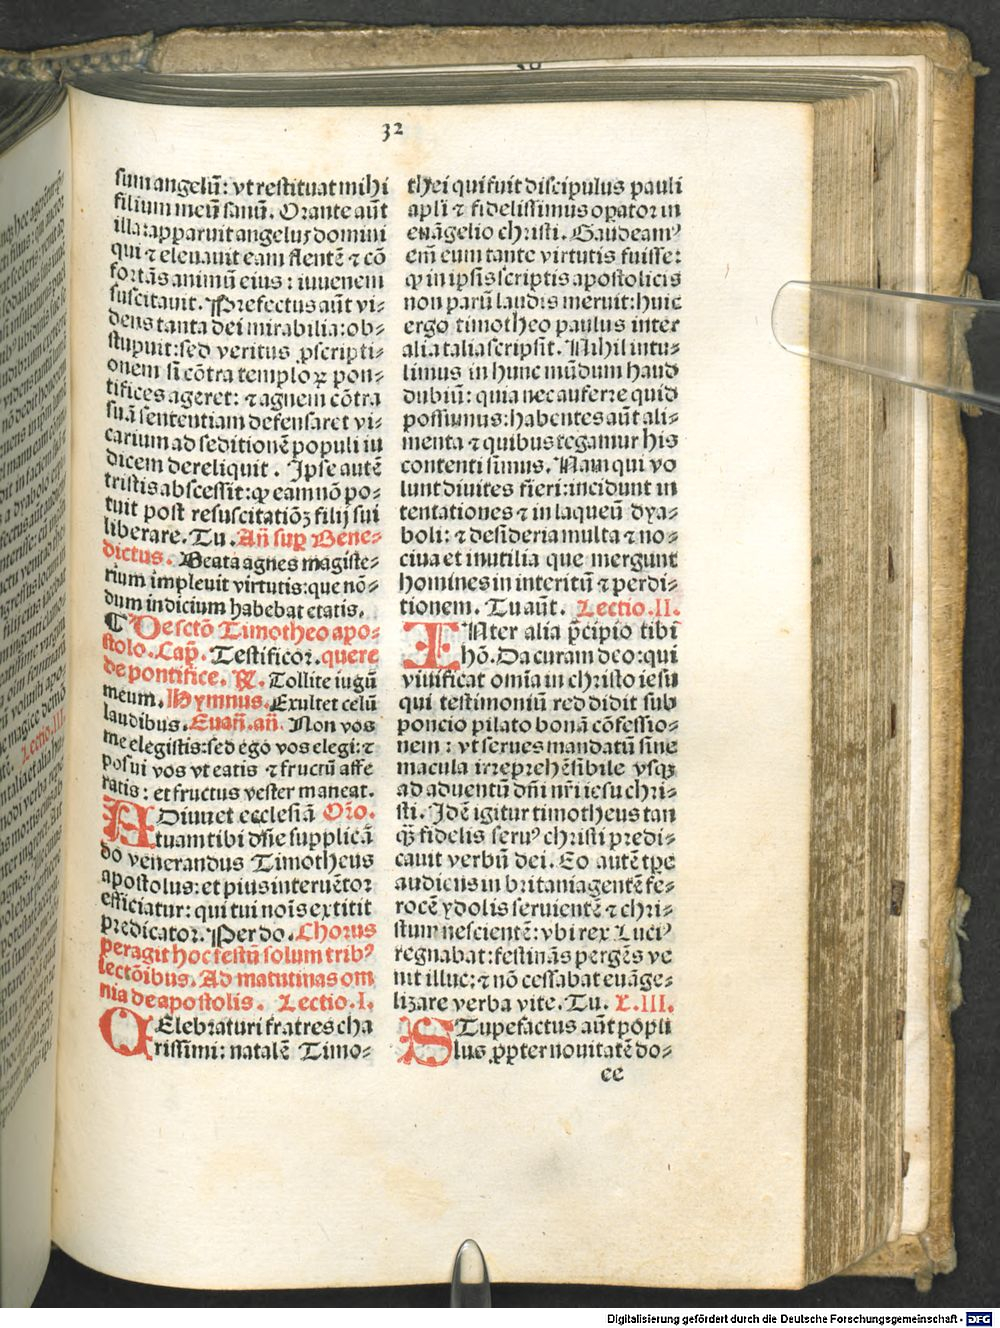 32
sum angelũ: vt restituat mihi
filium meũ sanũ. Orante aũt
illa: apparuit angelus domini
qui ⁊ eleuauit eam flentẽ ⁊ cõ
fortãs animũ eius: iuuenem
suscitauit. Prefectus aũt vi⸗
dens tanta dei mirabilia: ob⸗
stupuit: sed veritus ꝓscripti⸗
onem si cõtra temploꝝ pon⸗
tifices ageret: ⁊ agnem cõtra
suã sententiam defensaret vi⸗
carium ad seditionẽ populi iu
dicem dereliquit. Ipse autẽ
tristis abscessit: ꝙ eam nõ po⸗
tuit post resuscitatiõꝫ filij sui
liberare. Tu. Añ sup Bene⸗
dictus. Beata agnes magiste⸗
rium impleuit virtutis: que nõ⸗
dum indicium habebat etatis.
¶ De sctõ Timotheo apo⸗
stolo. Cap̃. Testificor. quere
de pontifice. ꝶ. Tollite iugũ
meum. Hymnus. Exultet celũ
laudibus. Euañ. añ. Non vos
me elegistis: sed ego vos elegi: ⁊
posui vos vt eatis ⁊ fructũ affe
ratis: et fructus vester maneat.
ADiuuet ecclesiã Orõ.
tuam tibi dñe supplicã
do venerandus Timotheus
apostolus: et pius interuẽtor
efficiatur: qui tui noĩs extitit
predicator. Per do. Chorus
peragit hoc festũ solum tribꝰ
lectõibus. Ad matutinas om
nia de apostolis. Lectio. I.
CElebraturi fratres cha
rissimi: natalẽ Timo⸗
thei qui fuit discipulus pauli
apli ⁊ fidelissimus opator in
euãgelio christi. Gaudeamꝰ
em̃ eum tante virtutis fuisse:
ꝙ in ipsis scriptis apostolicis
non parũ laudis meruit: huic
ergo timotheo paulus inter
alia talia scripsit. Nihil intu⸗
limus in hunc mũdum haud
dubiũ: quia nec auferre quid
possumus: habentes aũt ali⸗
menta ⁊ quibus tegamur his
contenti simus. Nam qui vo
lunt diuites fieri: incidunt in
tentationes ⁊ in laqueũ dya⸗
boli: ⁊ desideria multa ⁊ no⸗
ciua et inutilia que mergunt
homines in interitũ ⁊ perdi⸗
tionem. Tu aũt. Lectio. II.
INter alia p̃cipio tibi
hõ. Da curam deo: qui
viuificat omĩa in christo iesu
qui testimoniũ reddidit sub
poncio pilato bonã cõfessio⸗
nem: vt serues mandatũ sine
macula irreprehẽsibile vsqꝫ
ad aduentũ dñi nr̃i iesu chri⸗
sti. Idẽ igitur timotheus tan
q̃ꝫ fidelis seruꝰ christi predi⸗
cauit verbũ dei. Eo autẽ tp̃e
audiens in britania gentẽ fe⸗
rocẽ ydolis seruientẽ ⁊ chri⸗
stum nescientẽ: vbi rex Luciꝰ
regnabat: festinãs pergẽs ve
nit illuc: ⁊ nõ cessabat euãge⸗
lizare verba vite. Tu. L. III.
STupefactus aũt popli
lus ꝓpter nouitatẽ do⸗
ee
Digitalisierung gefördert durch die Deutsche Forschungsgemeinschaft - DFG